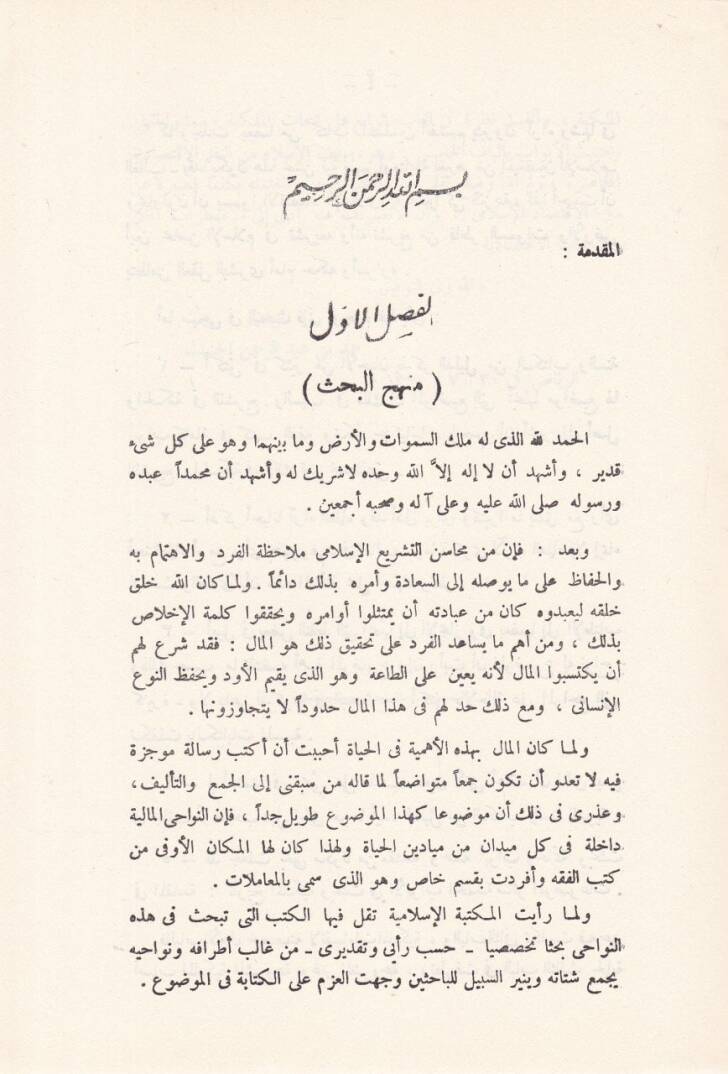 بسم الله الرحمن الرحيم
المقدمة :
الفصل الأول
( منهج البحث )
الحمد لله الذى له ملك السموات والأرض وما بينهما وهو على كل شىء
قدير ، وأشهد أن لا إله إلاَّ الله وحده لاشريك له وأشهد أن محمداً عبده
ورسوله صلى الله عليه وعلى آله وصحبه أجمعين .
وبعد : فإن من محاسن التشريع الإسلامى ملاحظة الفرد والاهتمام به
والحفاظ على ما يوصله إلى السعادة وأمره بذلك دائماً . ولما كان الله خلق
خلقه ليعبدوه كان من عبادته أن يمتثلوا أوامره ويحققوا كلمة الإخلاص
بذلك ، ومن أهم ما يساعد الفرد على تحقيق ذلك هو المال : فقد شرع لهم
أن يكتسبوا المال لأنه يعين على الطاعة وهو الذى يقيم الأود ويحفظ النوع
الإنسانى ، ومع ذلك حد لهم فى هذا المال حدوداً لا يتجاوزونها .
ولما كان المال بهذه الأهمية فى الحياة أحببت أن أكتب رسالة موجزة
فيه لا تعدو أن تكون جمعاً متواضعاً لما قاله من سبقنى إلى الجمع والتأليف،
وعذرى فى ذلك أن موضوعا كهذا الموضوع طويل جداً ، فإن النواحى المالية
داخلة فى كل ميدان من ميادين الحياة ولهذا كان لها المكان الأوفى من
كتب الفقه وأفردت بقسم خاص وهو الذى سمى بالمعاملات .
ولما رأيت المكتبة الإسلامية تقل فيها الكتب التى تبحث فى هذه
النواحى بحثا تخصصيا ـ حسب رأيى وتقديرى ـ من غالب أطرافه ونواحيه
يجمع شتاته وينير السبيل للباحثين وجهت العزم على الكتابة فى الموضوع .